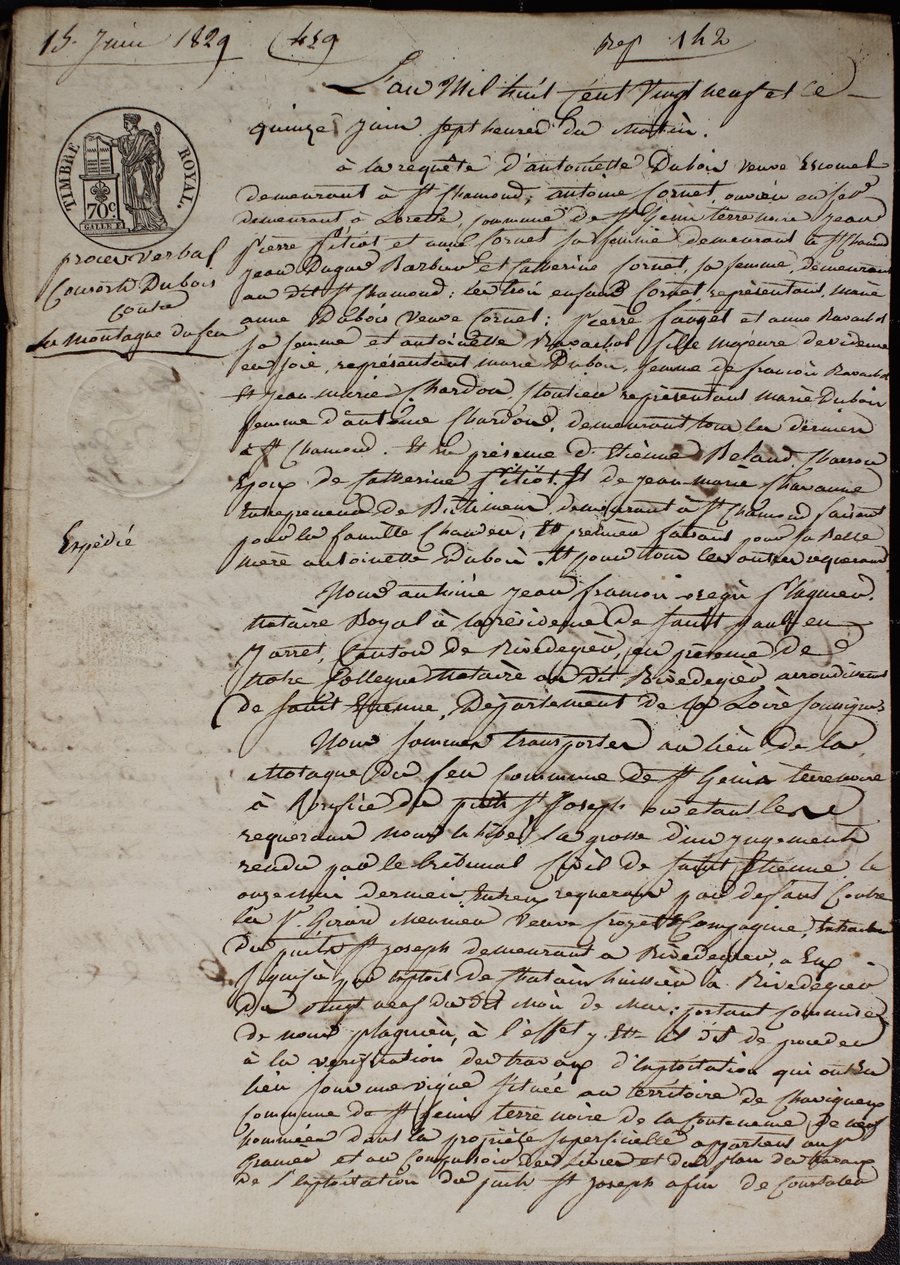 15. Juin 1829 (459 rep 142
L'an Mil huit Cent Vingt neuf et ce
quinze juin sept heures du Matin.
à la requête d'antoinette Dubois veuve
demeurant à St Chamond; antoine Cornet, ouvrier en
demeurant à Lorette, commune de St Genis terre noire jean
pierre fitiot et anne Cornet sa femme demeurant à St Chamd
jean Dugas Barbier et Catherine Cornet, sa femme, demeurant
au dit St Chamond; les trois enfans Cornet représentant marie
anne Dubois veuve Cornet; pierre et anne Ravachol
sa femme et antoinette Ravachol fille majeure devideuse
en soie, représentant marie Dubois, femme de francois Ravachol
Et jean marie Chardon, représentant marie Dubois
femme d'antoine Chardon, demeurant tous les derniers
à St Chamond. Et la présence d'Etienne Beland Charron
Epoux de Catherine fitiot Et de jean marie Chavanne
Entrepreneur de Bâtimens, demeurant à St Chamond faisant
pour la famille Et premier faisant pour sa belle
mère antoinette Dubois. Et pour tous les autres requerans
Nous antoine jean francois regis
Notaire Royal à la résidence de saint paul en
Jarret, Canton de Rivedegier, en présence de
Notre Collegue Notaire au dit Rivedegier arrondissemt
de saint Etienne, Département de la Loire soussignés
Nous sommes transportés au lieu de la
Motagne du feu commune de St Genis terrenoire
à l'orifice du puits St Joseph où étant les
requerans nous la grosse d'un jugement
rendu par le tribunal Civil de saint Etienne le
onze mai dernier Entre requerans par defaut Contre
les Sr. Girard meunier veuve & Compagnie,
du puits St joseph demeurant à Rivedegier, a Eux
signifié par exploit de huissier à Rivedegier
du vingt neuf du dit mois de Mai; portant
de nous à l'effet y Est il dit de proceder
à la verification des travaux d'Exploitation qui ont Eu
lieu sous une vigne située au territoire de
commune de St Genis terre noire de la contenance de neuf
hommées dans la propriété superficielle appartient aux
et au compulsoire des livres et des plan des travaux
de l'Exploitation du puits St joseph afin de Constater
TIMBRE ROYAL.
70c
procès Verbal
Consorts Dubois
Contre
La Montagne du feu
Expédié